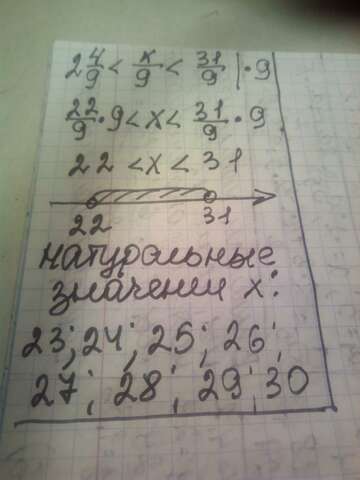 2 4/9 < x/9 < 31/9 | · 9
22/9 · 9 < x < 31/9 · 9
22 < x < 31
22 31
натуральные
значения x:
23; 24; 25; 26;
27; 28; 29; 30